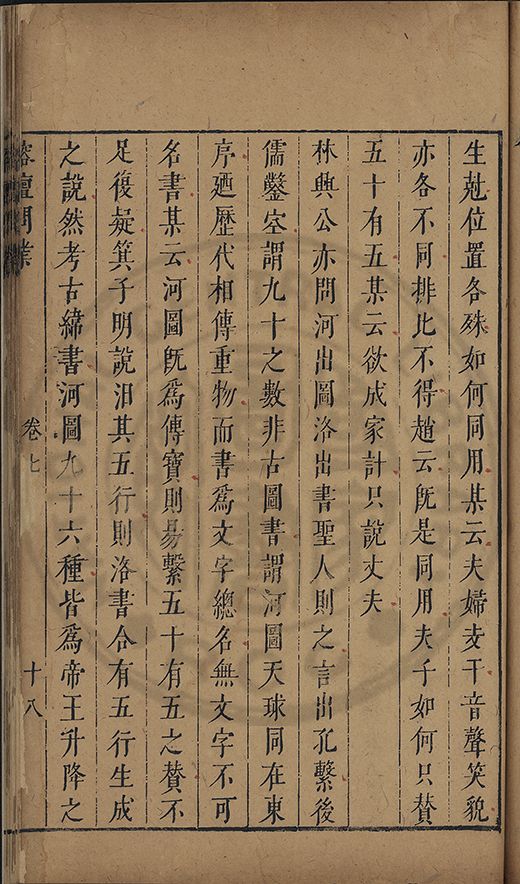 生尅位置各殊如何同用某云夫婦支干音聲笑貌
亦各不同排比不得趙云旣是同用夫子如何只贊
五十有五某云欲成家計只說丈夫
林興公亦問河出圖洛出書聖人則之言出孔繫後
儒鑿空謂九十之數非古圖書謂河圖天球同在東
序廼歷代相傳重物而書爲文字總名無文字不可
名書某云河圖旣爲傳寶則易繫五十有五之贊不
足復疑箕子明說汨其五行則洛書合有五行生成
之說然考古緯書河圖九十六種皆爲帝王升降之
榕壇問業
卷七
十八